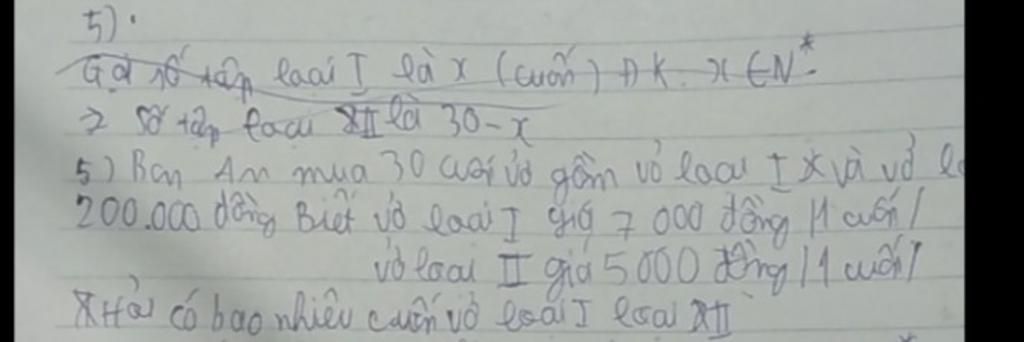 5).
Gọi số tập loại I là x (cuốn) ĐK. x ∈ N*
=> Số tập loại II là 30-x
5) Bạn An mua 30 cuốn vở gồm vở loại I và vở
200.000 đồng Biết vở loại I giá 7 000 đồng /1 cuốn/
vở loại II giá 5000 đồng /1 cuốn/
Hỏi có bao nhiêu cuốn vở loại I loại II